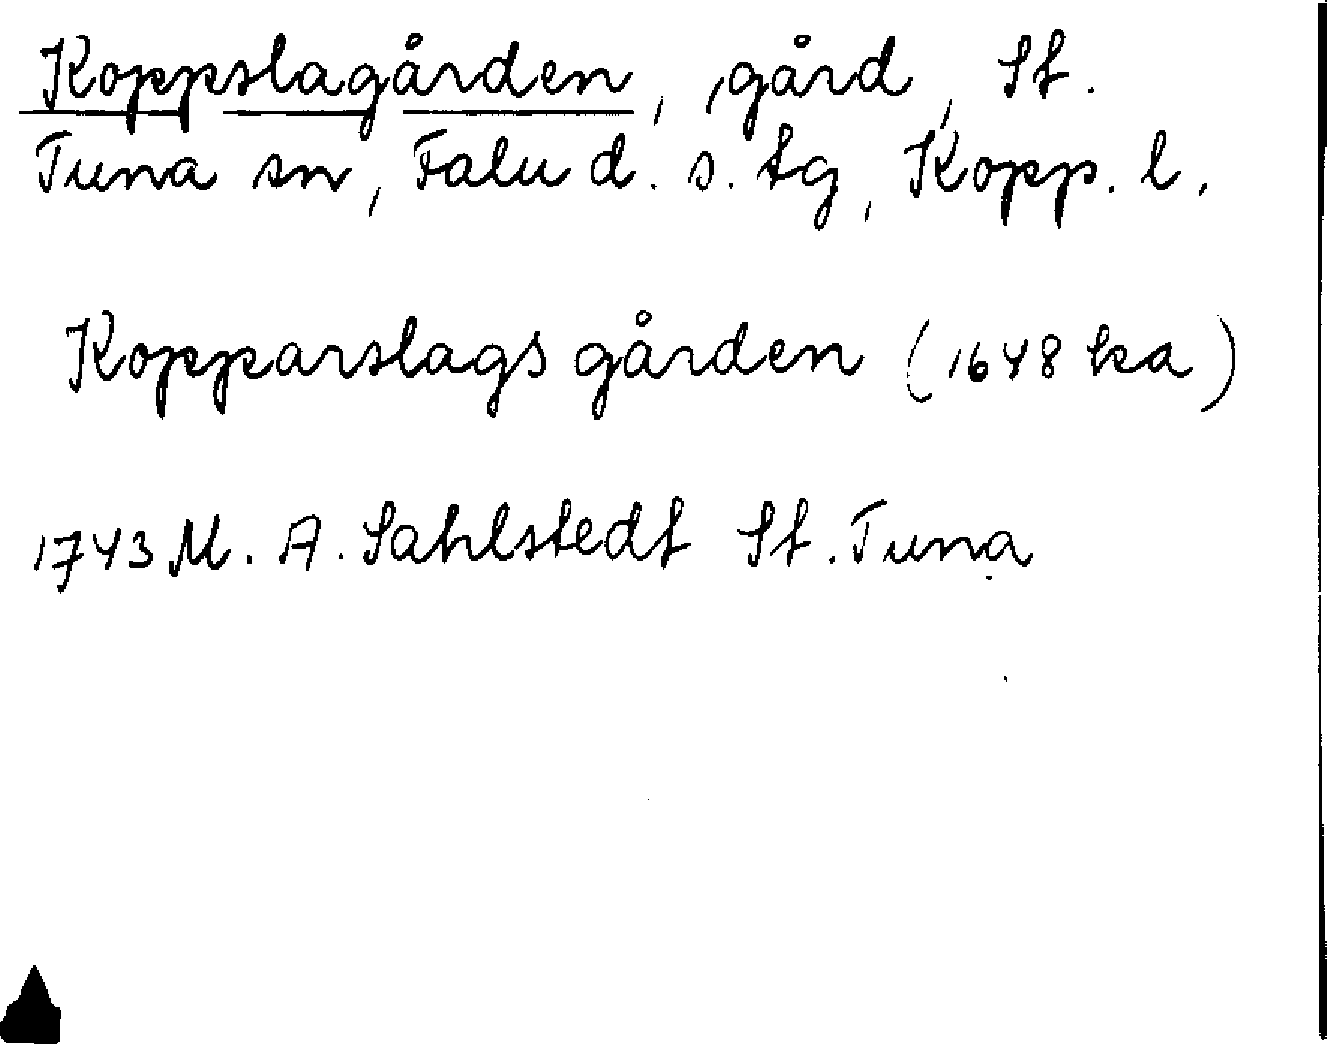 Koppslagården, gård, St.
Tuna sn, Falu d. s. tg, Kopp. l.
Kopparslags gården (1648 ka)
1743 M. A. Sahlstedt St. Tuna